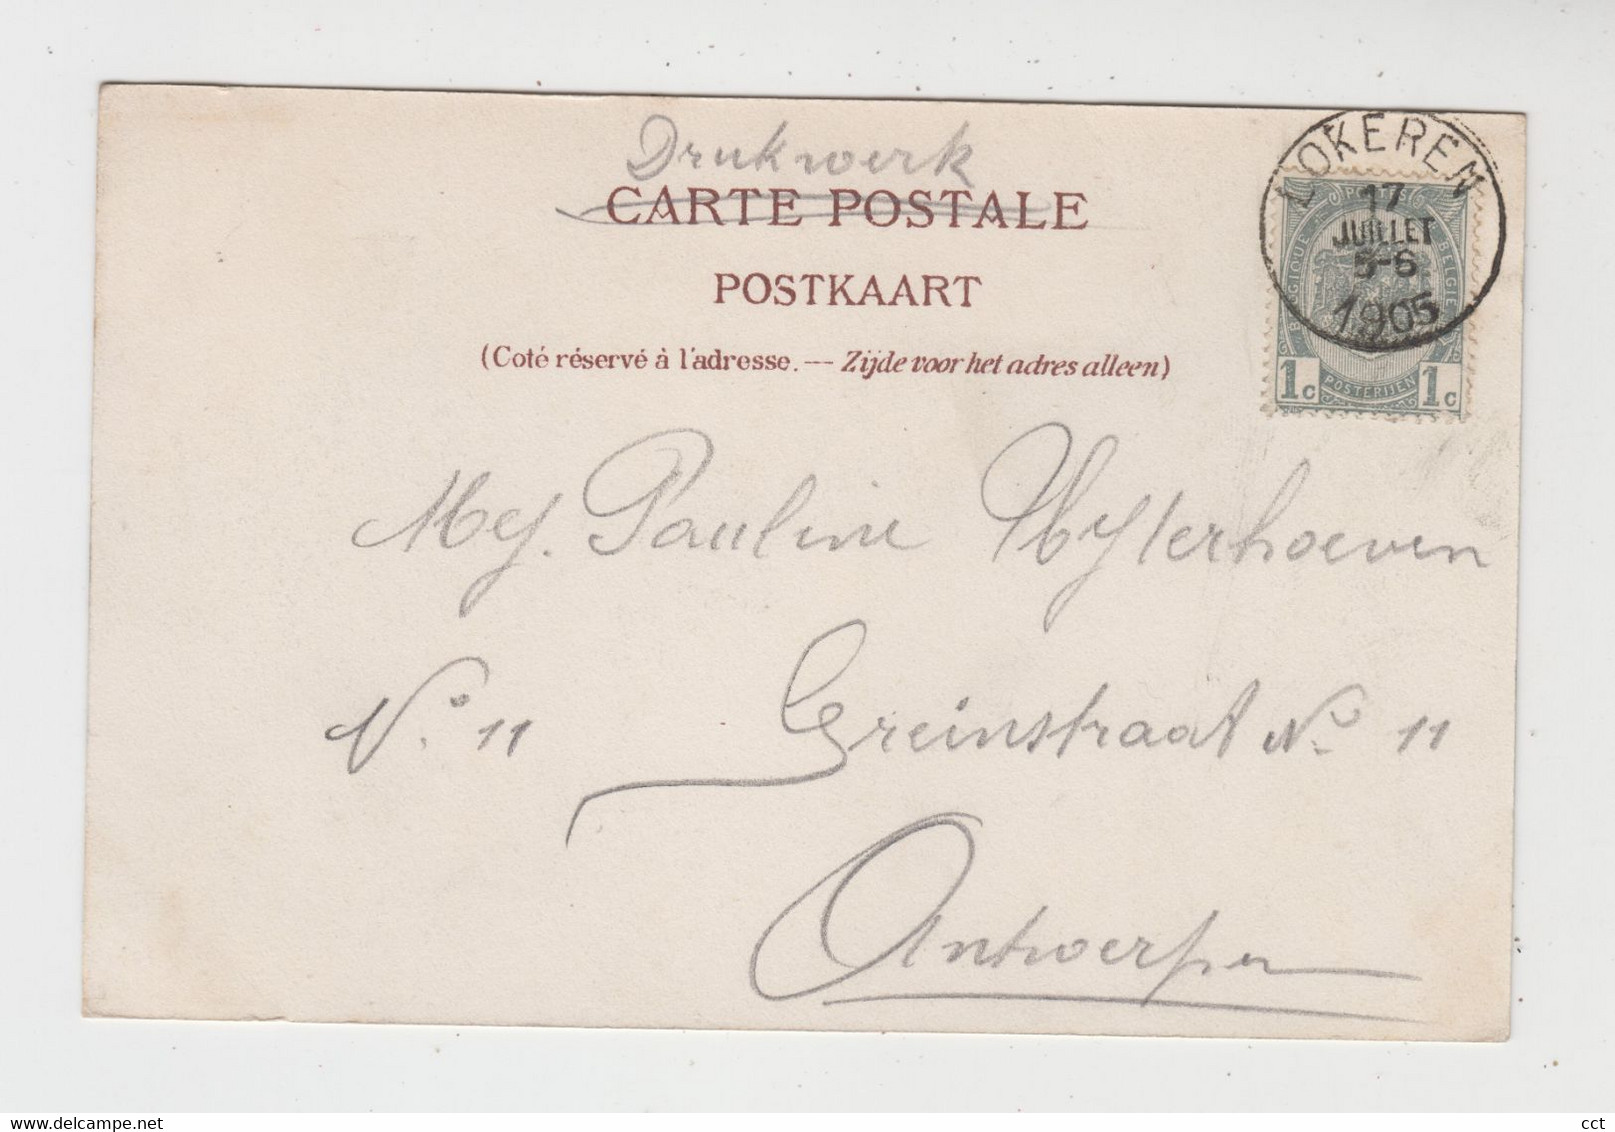 Drukwerk
CARTE POSTALE
POSTKAART
(Coté réservé à l'adresse. — Zijde voor het adres alleen)
LOKEREN
17
JUILLET
5-6
1905
POSTES
BELGIQUE
BELGIE
1c POSTERIJEN 1c
Mej. Pauline Wijterhoeven
No. 11 Greinstraat No. 11
Antwerpen
www.delcampe.net
cct